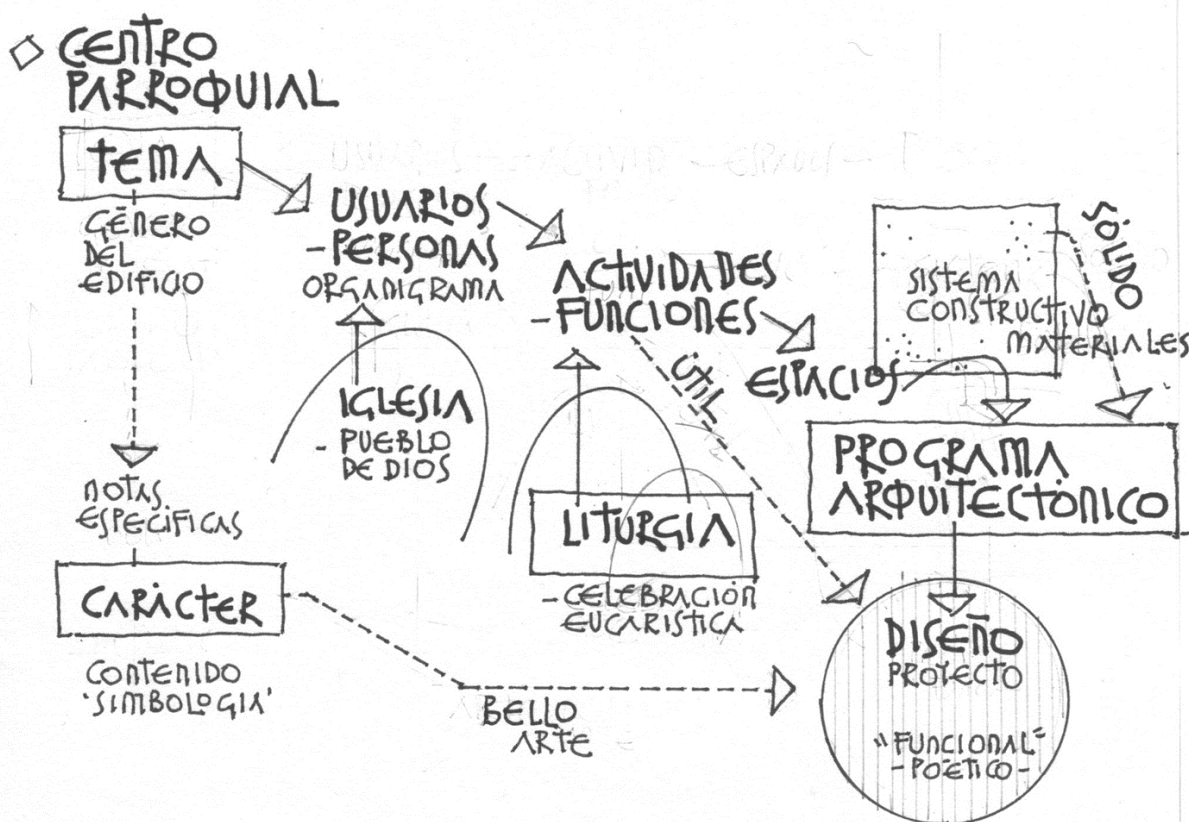 CENTRO
PARROQUIAL
TEMA
GÉNERO
DEL
EDIFICIO
NOTAS
ESPECÍFICAS
CARÁCTER
CONTENIDO
'SIMBOLOGIA'
USUARIOS
-PERSONAS
ORGANIGRAMA
IGLESIA
- PUEBLO
DE DIOS
ACTIVIDADES
-FUNCIONES
LITURGIA
-CELEBRACIÓN
EUCARÍSTICA
ÚTIL
ESPACIOS
SISTEMA
CONSTRUCTIVO
MATERIALES
SÓLIDO
PROGRAMA
ARQUITECTÓNICO
DISEÑO
PROYECTO
"FUNCIONAL"
-POÉTICO-
BELLO
ARTE